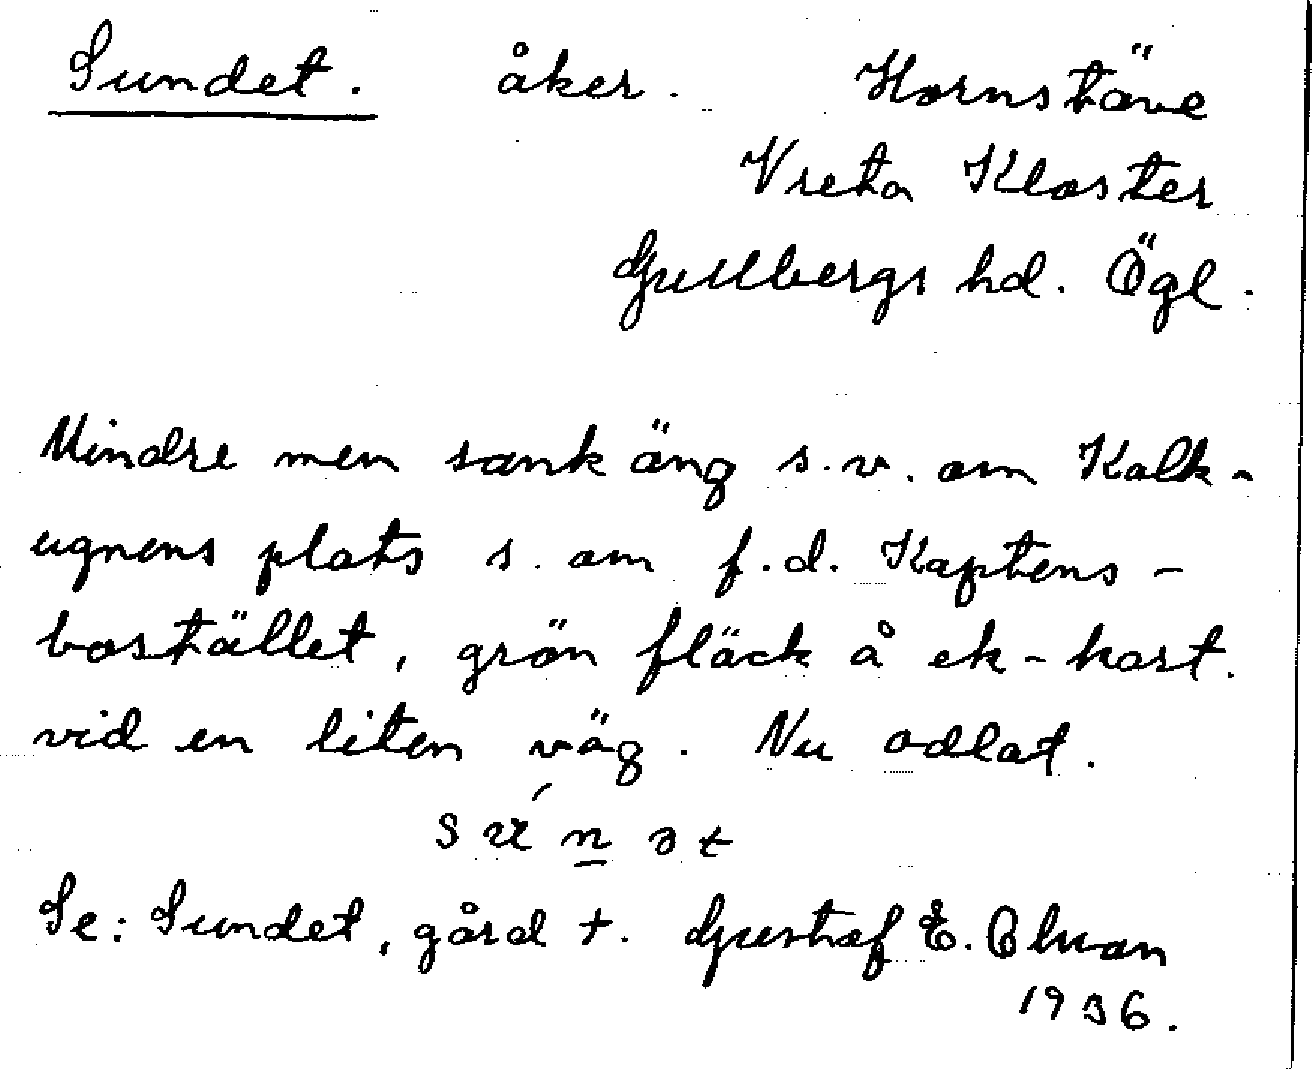 Sundet. åker. Kornstäve
Vreta Kloster
Gullbergs hd. Ögl.
Mindre men sank äng s.v. om Kalk-
ugnens plats s. om f.d. Kaptens-
bostället, grön fläck å ek-kart.
vid en liten väg. Nu odlat.
Se: Sundet, gård +. Gustaf E.
1936.